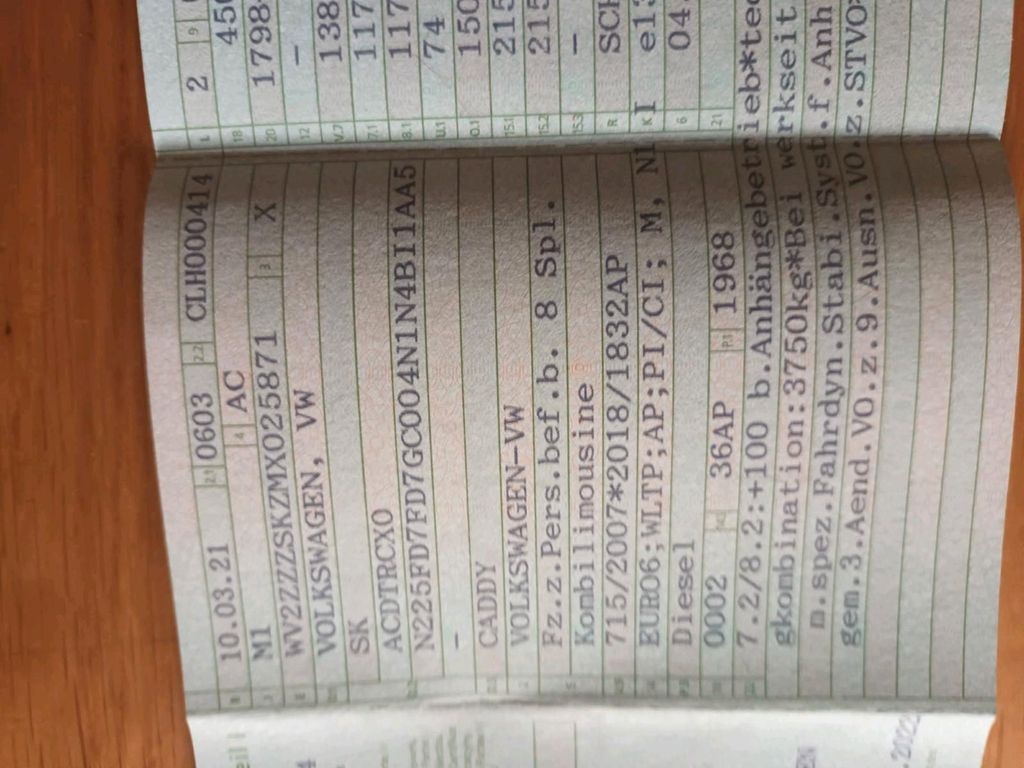 B 10.03.21 2.1 0603 2.2 CLH000414
J M1 4 AC
E WV2ZZZSKZMX025871 3 X
VOLKSWAGEN, VW
SK
ACDTRCX0
N225FD7FD7GC004N1N4BI1AA5
-
CADDY
VOLKSWAGEN-VW
Fz.z.Pers.bef.b. 8 Spl.
Kombilimousine
715/2007*2018/1832AP
EURO6;WLTP;AP;PI/CI; M, N1 I
Diesel
0002 36AP P.1 1968
7.2/8.2:+100 b.Anhängebetrieb*tec
gkombination:3750kg*Bei werkseit
m.spez.Fahrdyn.Stabi.Syst.f.Anh
gem.3.Aend.VO.z.9.Ausn.VO.z.STVO
L 2 9
18 450
20 1798
12 -
V.7 138
7.1 117
8.1 117
U.1 74
O.1 150
15.1 215
15.2 215
15.3 -
R SCH
K e13
6 04.
21
eil I
4
EN
.2022